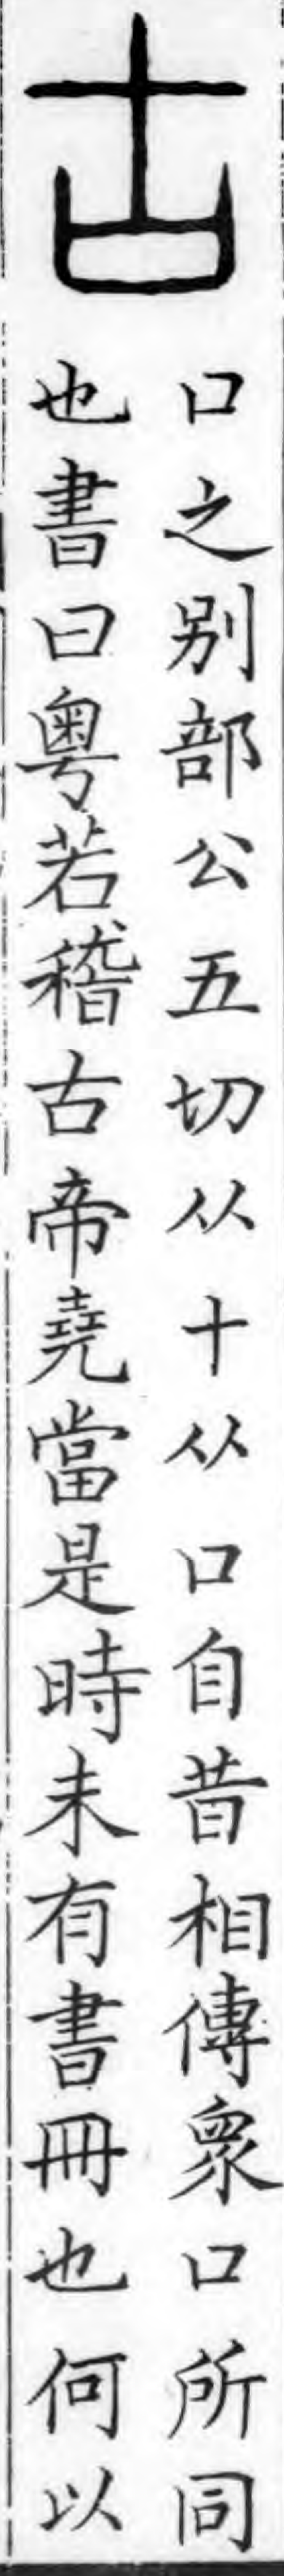 古
口之别部公五切从十从口自昔相傳衆口所同
也書曰粤若稽古帝堯當是時未有書冊也何以